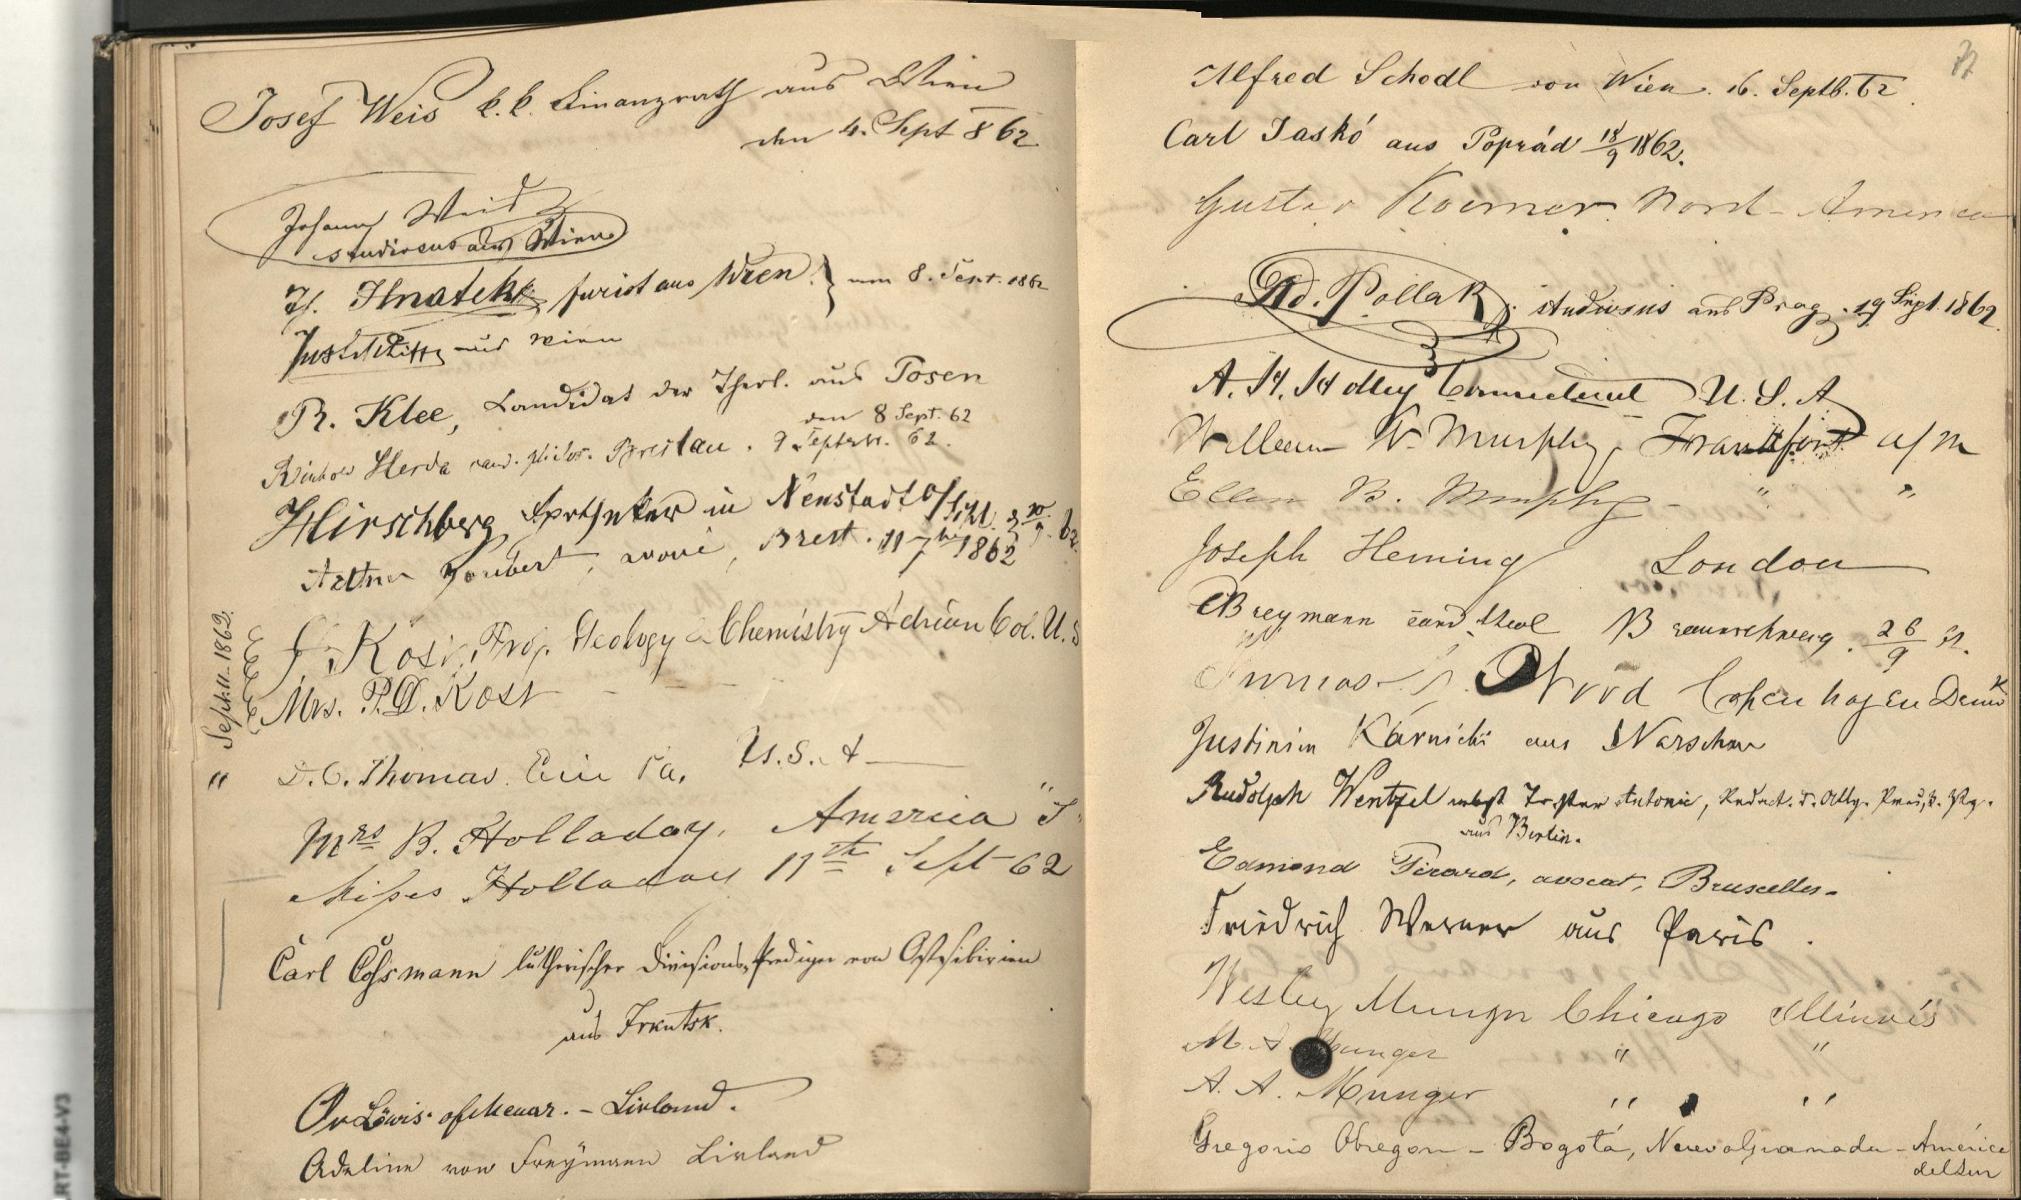 Josef Weis k. k. Finanzrath aus Wien
den 4. Sept 862
Johann
studiosus aus Wien
H. Hnatek jurist aus Wien. } am 8. Sept. 1862
aus Wien
R. Klee, Candidat der Theol. aus Posen
den 8 Sept. 62
Herda cand. philos. Breslau. 9 Septbr. 62.
Hirschberg, Apotheker in Neustadt o/Schl. 10/9. 62
Joubert, avoué, Brest. 11 7bre 1862
J. Kost, Prof. Geology & Chemistry Adrian Col. U.S
Mrs. P.D. Kost
" Sept. 11 - 1862.
D. C. Thomas. Erie Pa. U.S.A
Mrs B. Holladay, America
Misses Holladay 11th Sept 62
Carl Cossmann lutherischer Divisions-Prediger von Ostsibirien
aus Irkutsk.
Löwis of Menar. - Livland.
Adeline von Freymann Livland
77
Alfred Schodl von Wien. 16. Septb. 62.
Carl Jaskó aus Poprád 18/9 1862.
Gustav Koerner. Nord-America
Ad. Pollak. studiosus aus Prag. 19 Sept. 1862.
A. H. Holley Connecticut U. S. A
William W. Murphy, Frankfort a/m
Ellen B. Murphy - " "
Joseph Heming London
Breymann cand. theol Braunschweig. 26/9 62.
Thomas Wood Copenhagen Denmk
Justinian Karnicki aus Warschau
Rudolph Wentzel nebst Tochter Antonie, Redact. d. Allg. Preuß. Ztg.
aus Berlin.
Edmond Picard, avocat, Bruxelles -
Friedrich Werner aus Paris.
Wesley Munger Chicago Illinois
M. A. Munger " "
A. A. Munger " "
Gregorio Obregon - Bogotá, Nueva Granada - América
del Sur
RT-BE4-V3